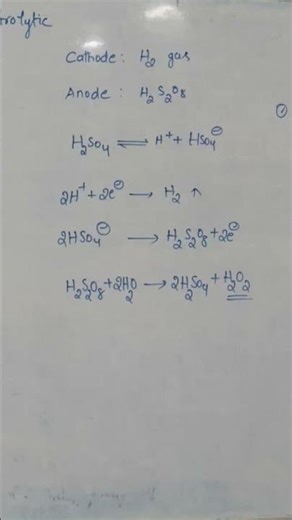 rolytic
Cathode : H₂ gas
Anode : H₂S₂O₈
H₂SO₄ ⇌ H⁺ + HSO₄⊖
2H⁺ + 2e⊖ → H₂ ↑
2HSO₄⊖ → H₂S₂O₈ + 2e⊖
H₂S₂O₈ + 2H₂O → 2H₂SO₄ + H₂O₂